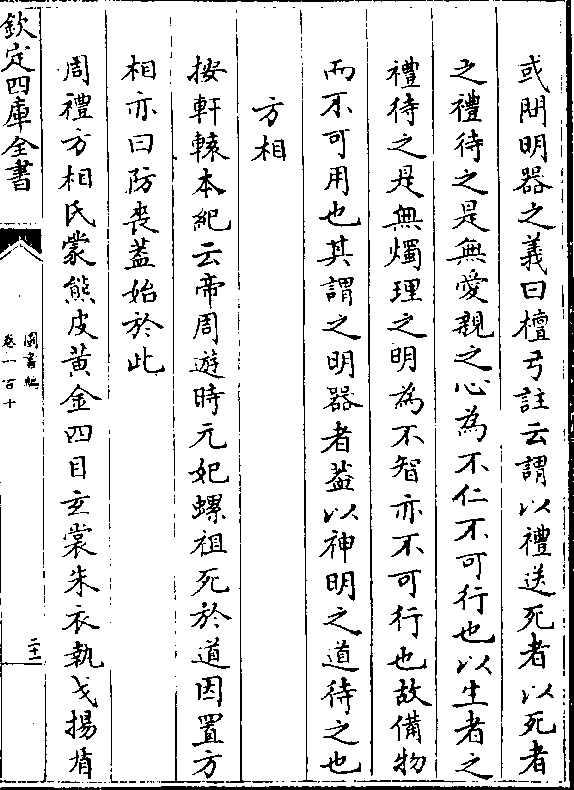 或問明器之義曰檀弓註云謂以禮送死者以死者
之禮待之是無愛親之心為不仁不可行也以生者之
禮待之是無燭理之明為不智亦不可行也故備物
而不可用也其謂之明器者蓋以神明之道待之也
方相
按軒轅本紀云帝周遊時元妃螺祖死於道因置方
相亦曰防喪蓋始於此
周禮方相氏蒙熊皮黃金四目玄裳朱衣執戈揚盾
欽定四庫全書
圖書編
卷一百十
二十一